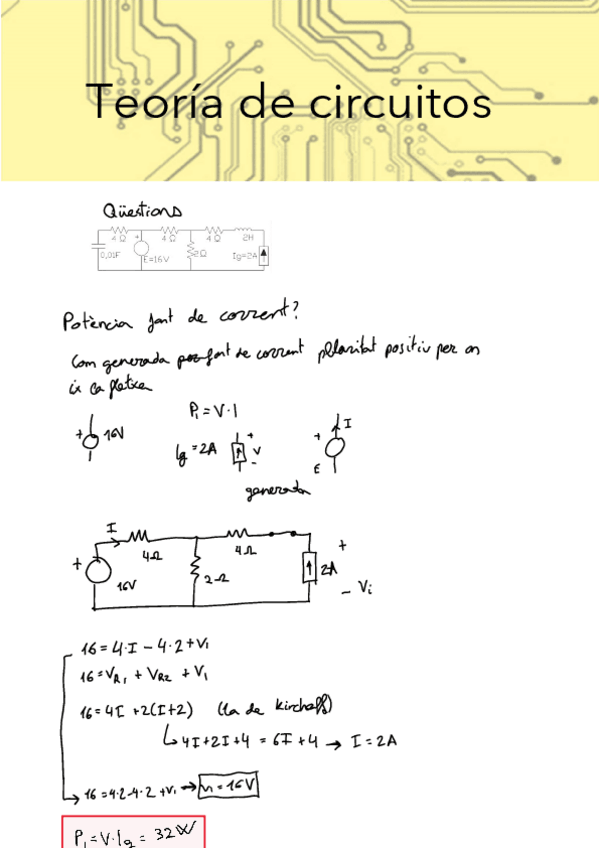 Teoría de circuitos
Qüestions
4 Ω 4 Ω 4 Ω 2H
0,01F E=16V 2Ω Ig=2A
Potència font de corrent?
Com generada font de corrent polaritat positiu per on
ix la fletxa
P₁ = V·I
+ 16V
Ig = 2A + V -
+ I E
generada
I
4Ω 4Ω
+ 16V 2Ω 2A + - Vi
16 = 4·I - 4·2 + V₁
16 = VR₁ + VR2 + V₁
16 = 4I + 2(I+2) (la de Kirchoff)
4I + 2I + 4 = 6I + 4 → I = 2A
16 = 4·2 - 4·2 + V₁ → V₁ = 16V
P₁ = V·Ig = 32W